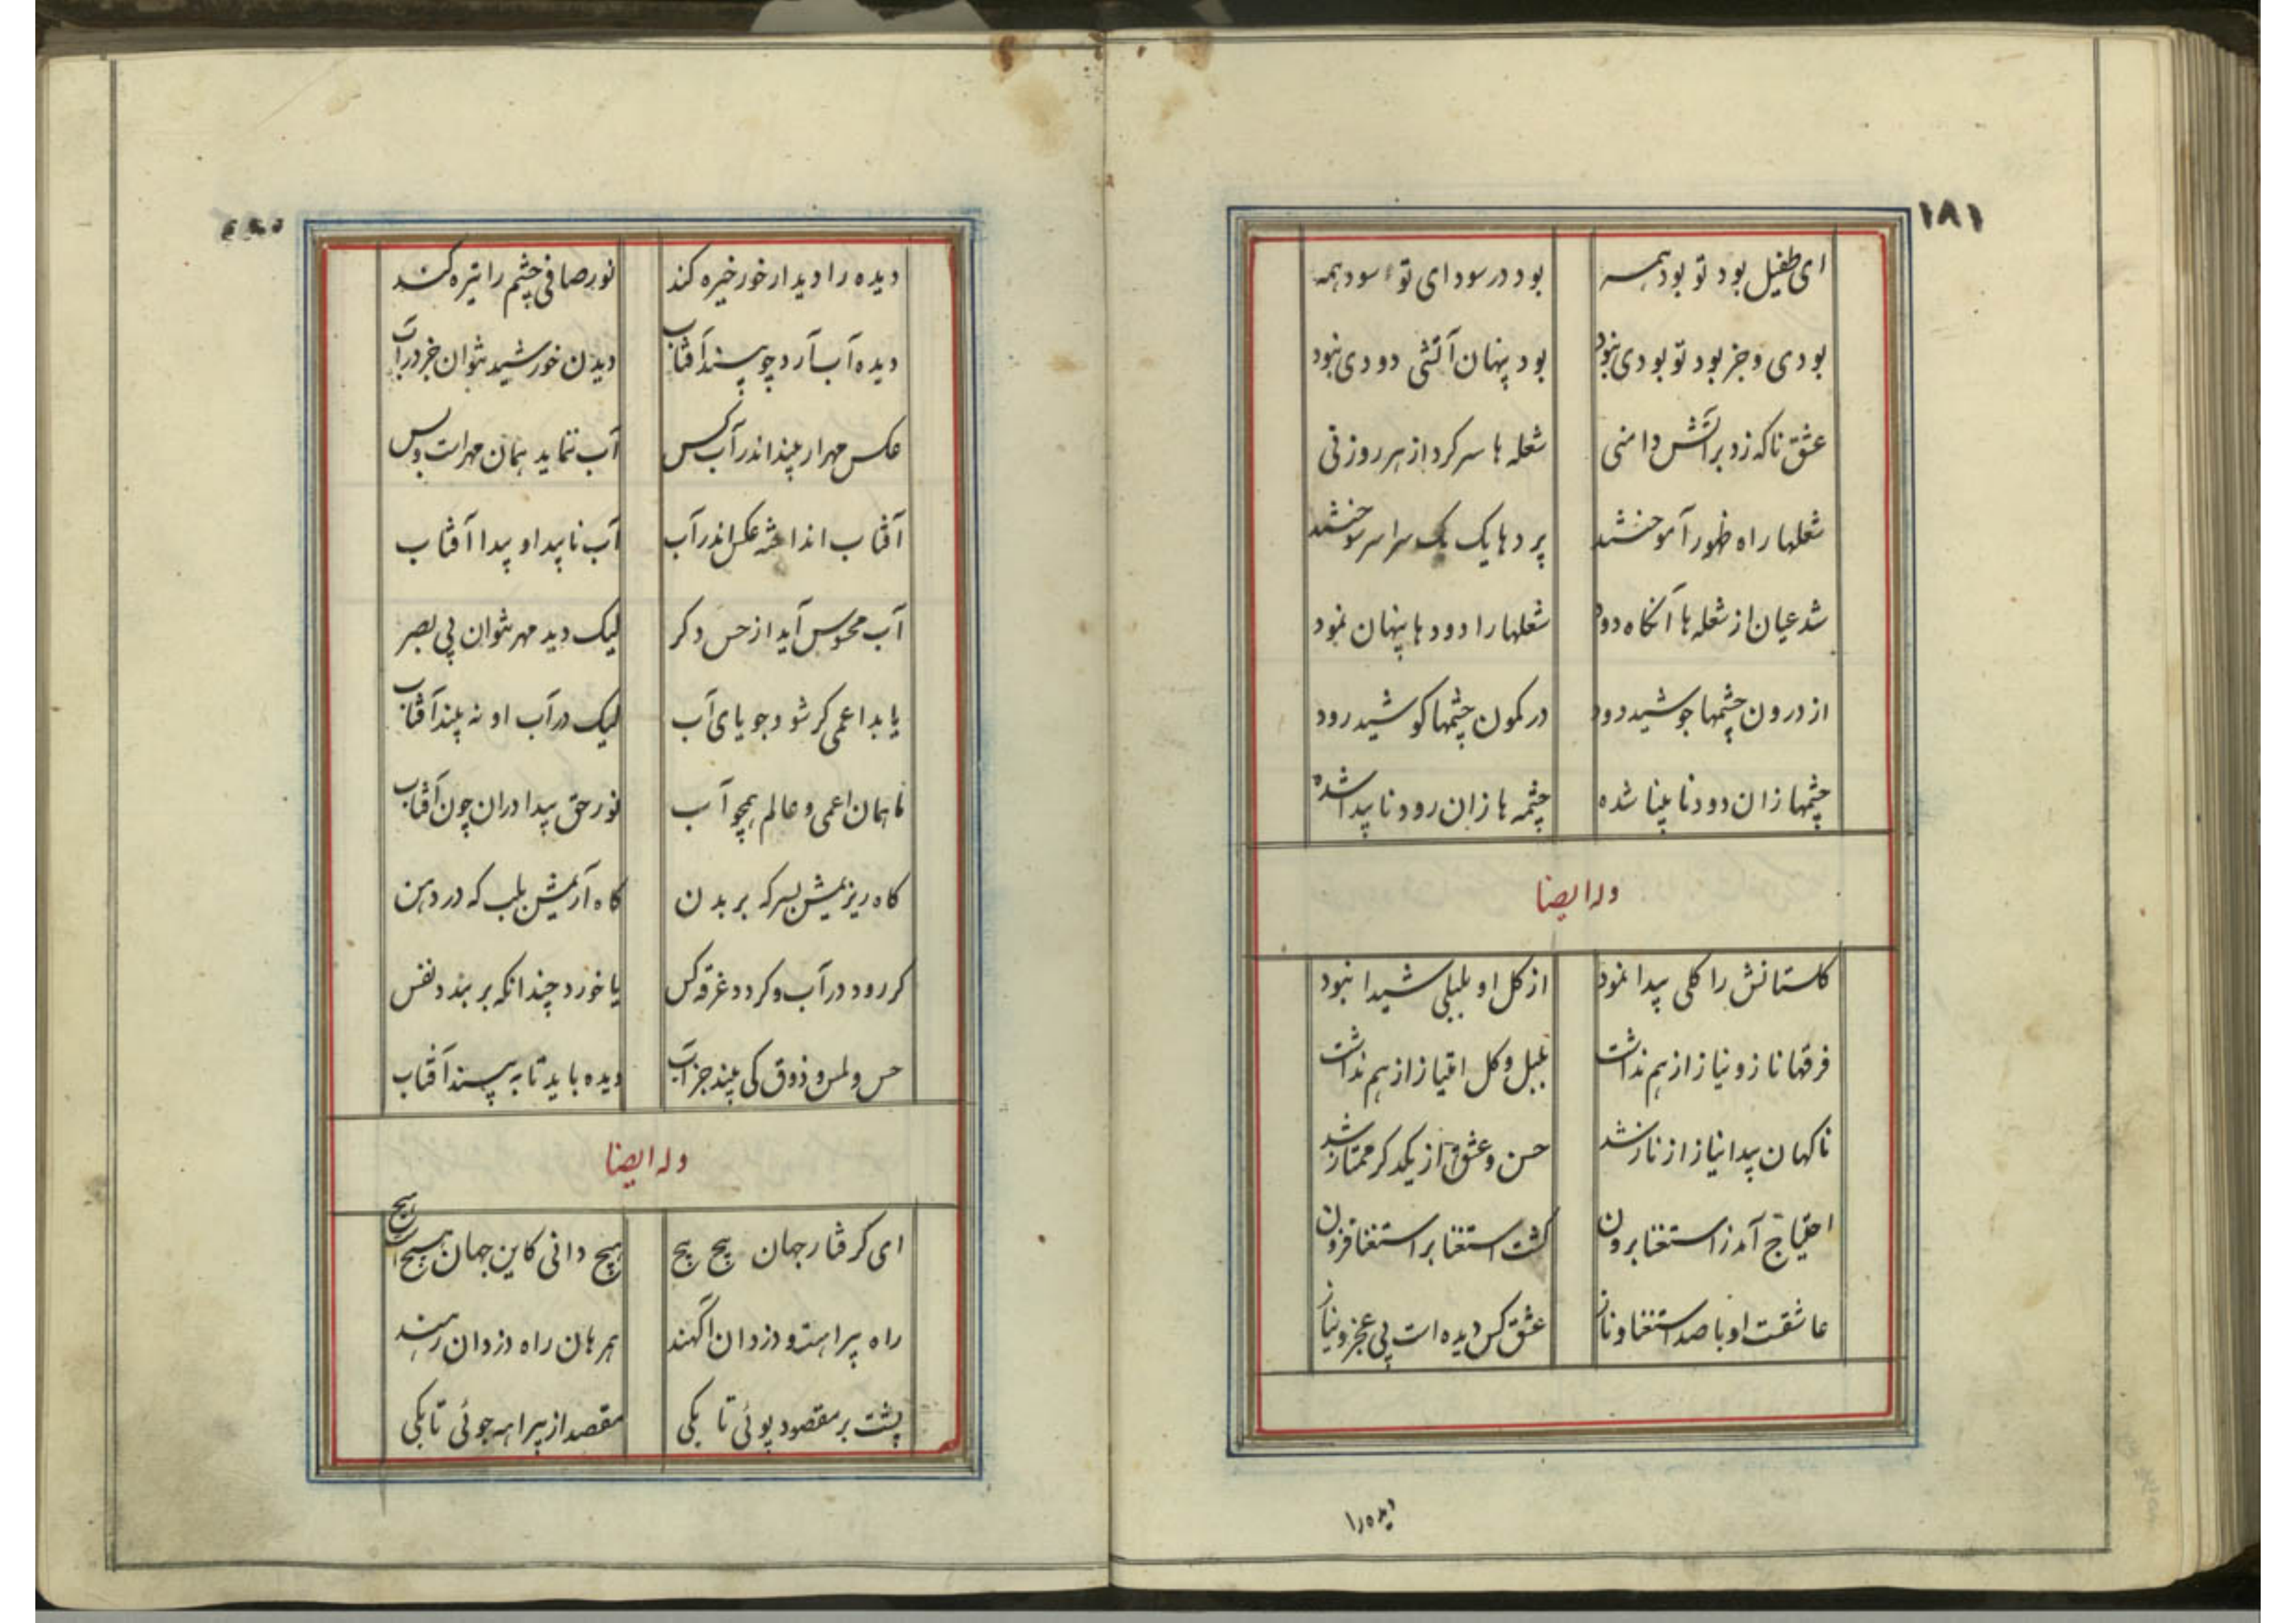 ۱۸۱
ای طفیل بود تو بود همه بود در سودای تو سود همه
بودی و جز بود تو بودی نبود بود پنهان آتشی دودی نبود
عشق ناکه زد بر آتش دامنی شعله ها سر کرد از هر روزنی
شعلها راه ظهور آموختند پردها یک یک سراسر سوختند
شد عیان از شعله ها آنکاه دود شعلها را دودها پنهان نمود
از درون چشمها جوشید دود در کمون چشمها کوشید رود
چشمها زان دود نابینا شده چشمه ها زان رود ناپیدا شده
وله ایضا
کلستانش را کلی پیدا نمود از کل او بلبلی شیدا نبود
فرقها ناز و نیاز از هم نداشت بلبل و کل امتیاز از هم نداشت
ناکهان پیدا نیاز از ناز شد حسن و عشق از یکدکر ممتاز شد
احتیاج آمد ز استغنا برون کشت استغنا بر استغنا فزون
عاشقست او با صد استغنا و ناز عشق کس دیده است بی عجز و نیاز
دیده را
دیده را دیدار خور خیره کند نور صافی چشم را تیره کند
دیده آب آرد چو بیند آفتاب دیدن خورشید نتوان جز در آب
عکس مهر ار بیند اندر آب کس آب ننماید همان مهرات و بس
آفتاب انداخته عکس اندر آب آب ناپیدا و پیدا آفتاب
آب محسوس آید از حس دکر لیک دید مهر نتوان بی بصر
یابد اعمی کر شود جویای آب لیک در آب او نه بیند آفتاب
ما همان اعمی و عالم همچو آب نور حق پیدا در آن چون آفتاب
کاه ریزیمش بسر که بر بدن کاه آریمش بلب که در دهن
کر رود در آب و کردد غرقه کس یا خورد چندانکه بربندد نفس
حس و لمس و ذوق کی بیند جز آب دیده باید تا به بیند آفتاب
وله ایضا
ای کرفتار جهان هیچ هیچ هیچ دانی کاین جهان هیچ است هیچ
راه بیراهست و دزدان آکهند همرهان راه دزدان رهند
پشت بر مقصود پوئی تا بکی مقصد از بیراهه جوئی تا بکی